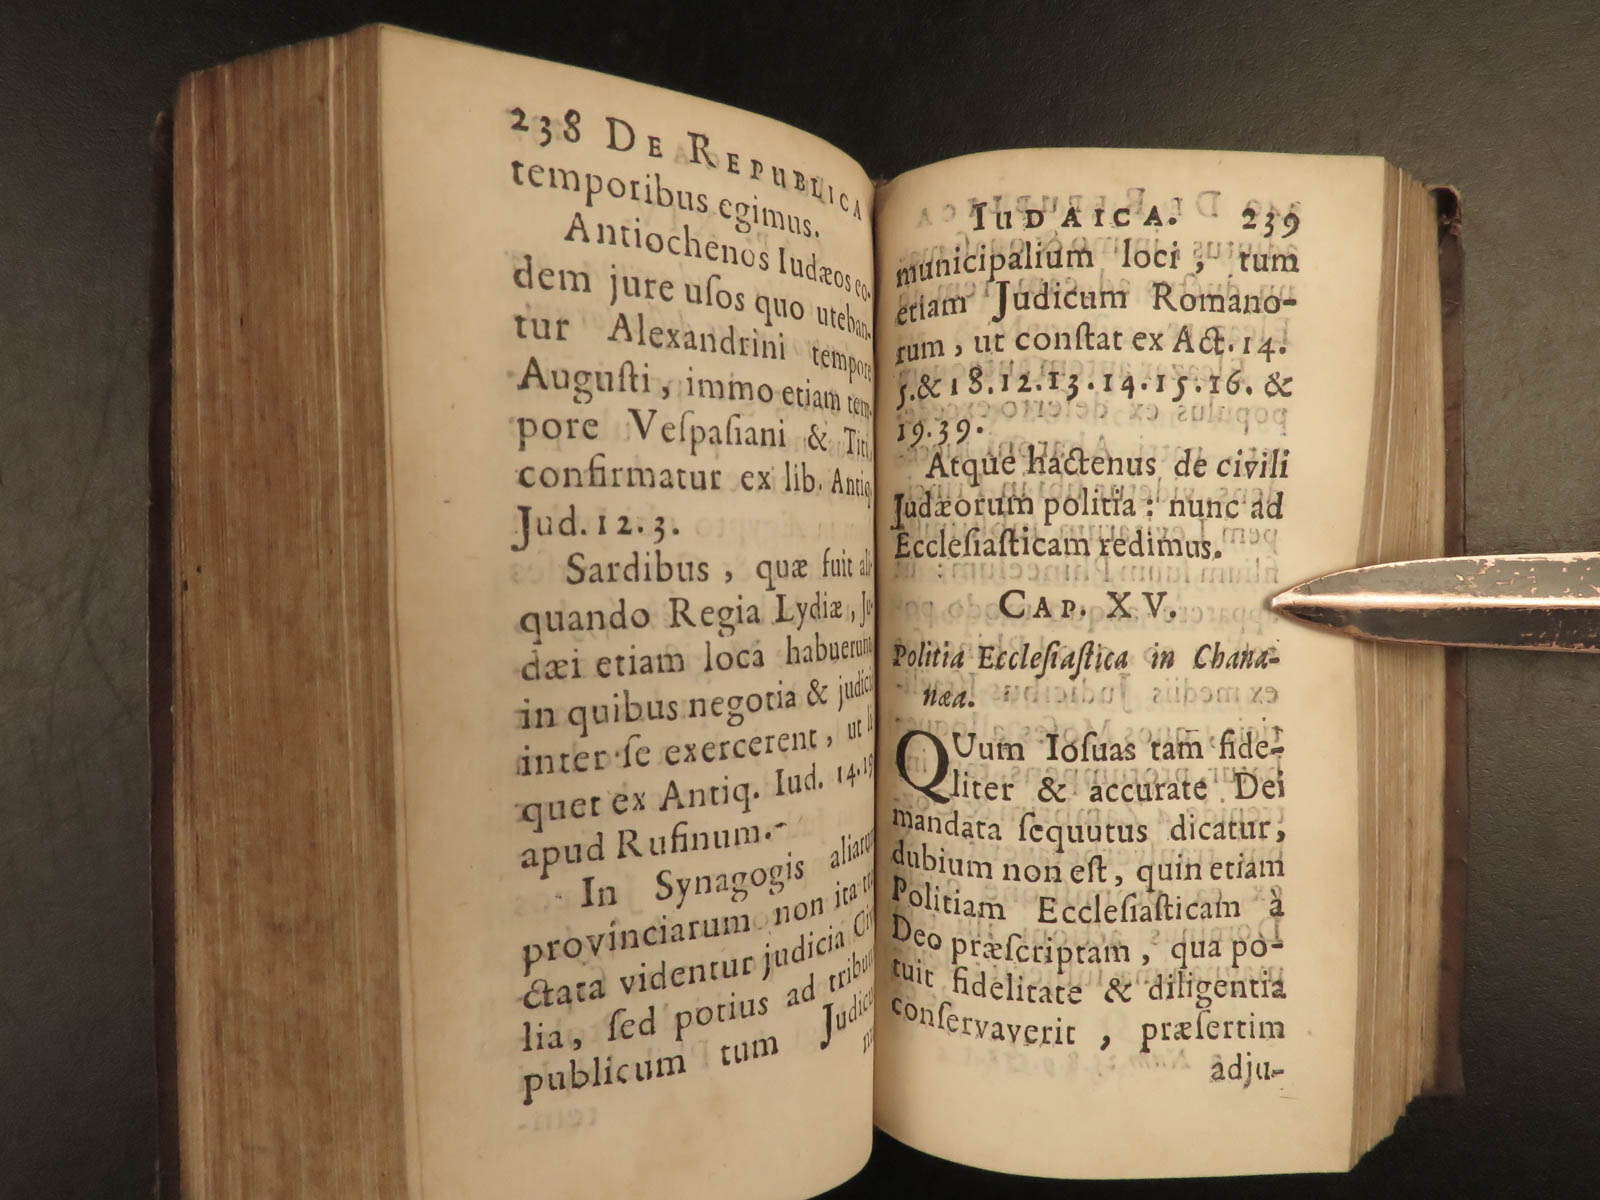 238 DE REPUBLICA
temporibus egimus.
Antiochenos Iudæos eo-
dem jure uſos quo uteban-
tur Alexandrini tempore
Auguſti, immo etiam tem-
pore Veſpaſiani & Titi,
confirmatur ex lib. Antiq.
Jud. 12. 3.
Sardibus, quæ fuit ali-
quando Regia Lydiæ, Ju-
dæi etiam loca habuerunt
in quibus negotia & judicia
inter ſe exercerent, ut li-
quet ex Antiq. Iud. 14.
apud Rufinum.
In Synagogis aliarum
provinciarum non ita
ctata videntur judicia
lia, ſed potius ad
publicum tum Judicu
IUDAICA. 239
municipalium loci, tum
etiam Judicum Romano-
rum, ut conſtat ex Act. 14.
5. & 18. 12. 13. 14. 15. 16. &
19. 39.
Atque hactenus de civili
Judæorum politia: nunc ad
Eccleſiaſticam redimus.
CAP. XV.
Politia Eccleſiaſtica in Chana-
næa.
QUum Ioſuas tam fide-
liter & accurate Dei
mandata ſequutus dicatur,
dubium non eſt, quin etiam
Politiam Eccleſiaſticam à
Deo præſcriptam, qua po-
tuit fidelitate & diligentia
conſervaverit, præſertim
adju-